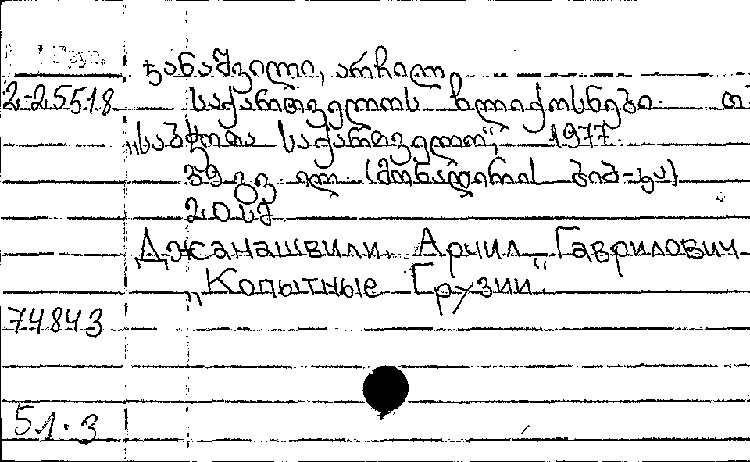 ჯანაშვილი, არჩილ
2-25518 საქართველოს ჩლიქოსნები. თ
„საბჭოთა საქართველო", 1977.
39 გვ. ილ. (მონადირის ბიბ-კა)
Джанашвили Арчил Гаврилович
„Копытные Грузии.
74843
51.3